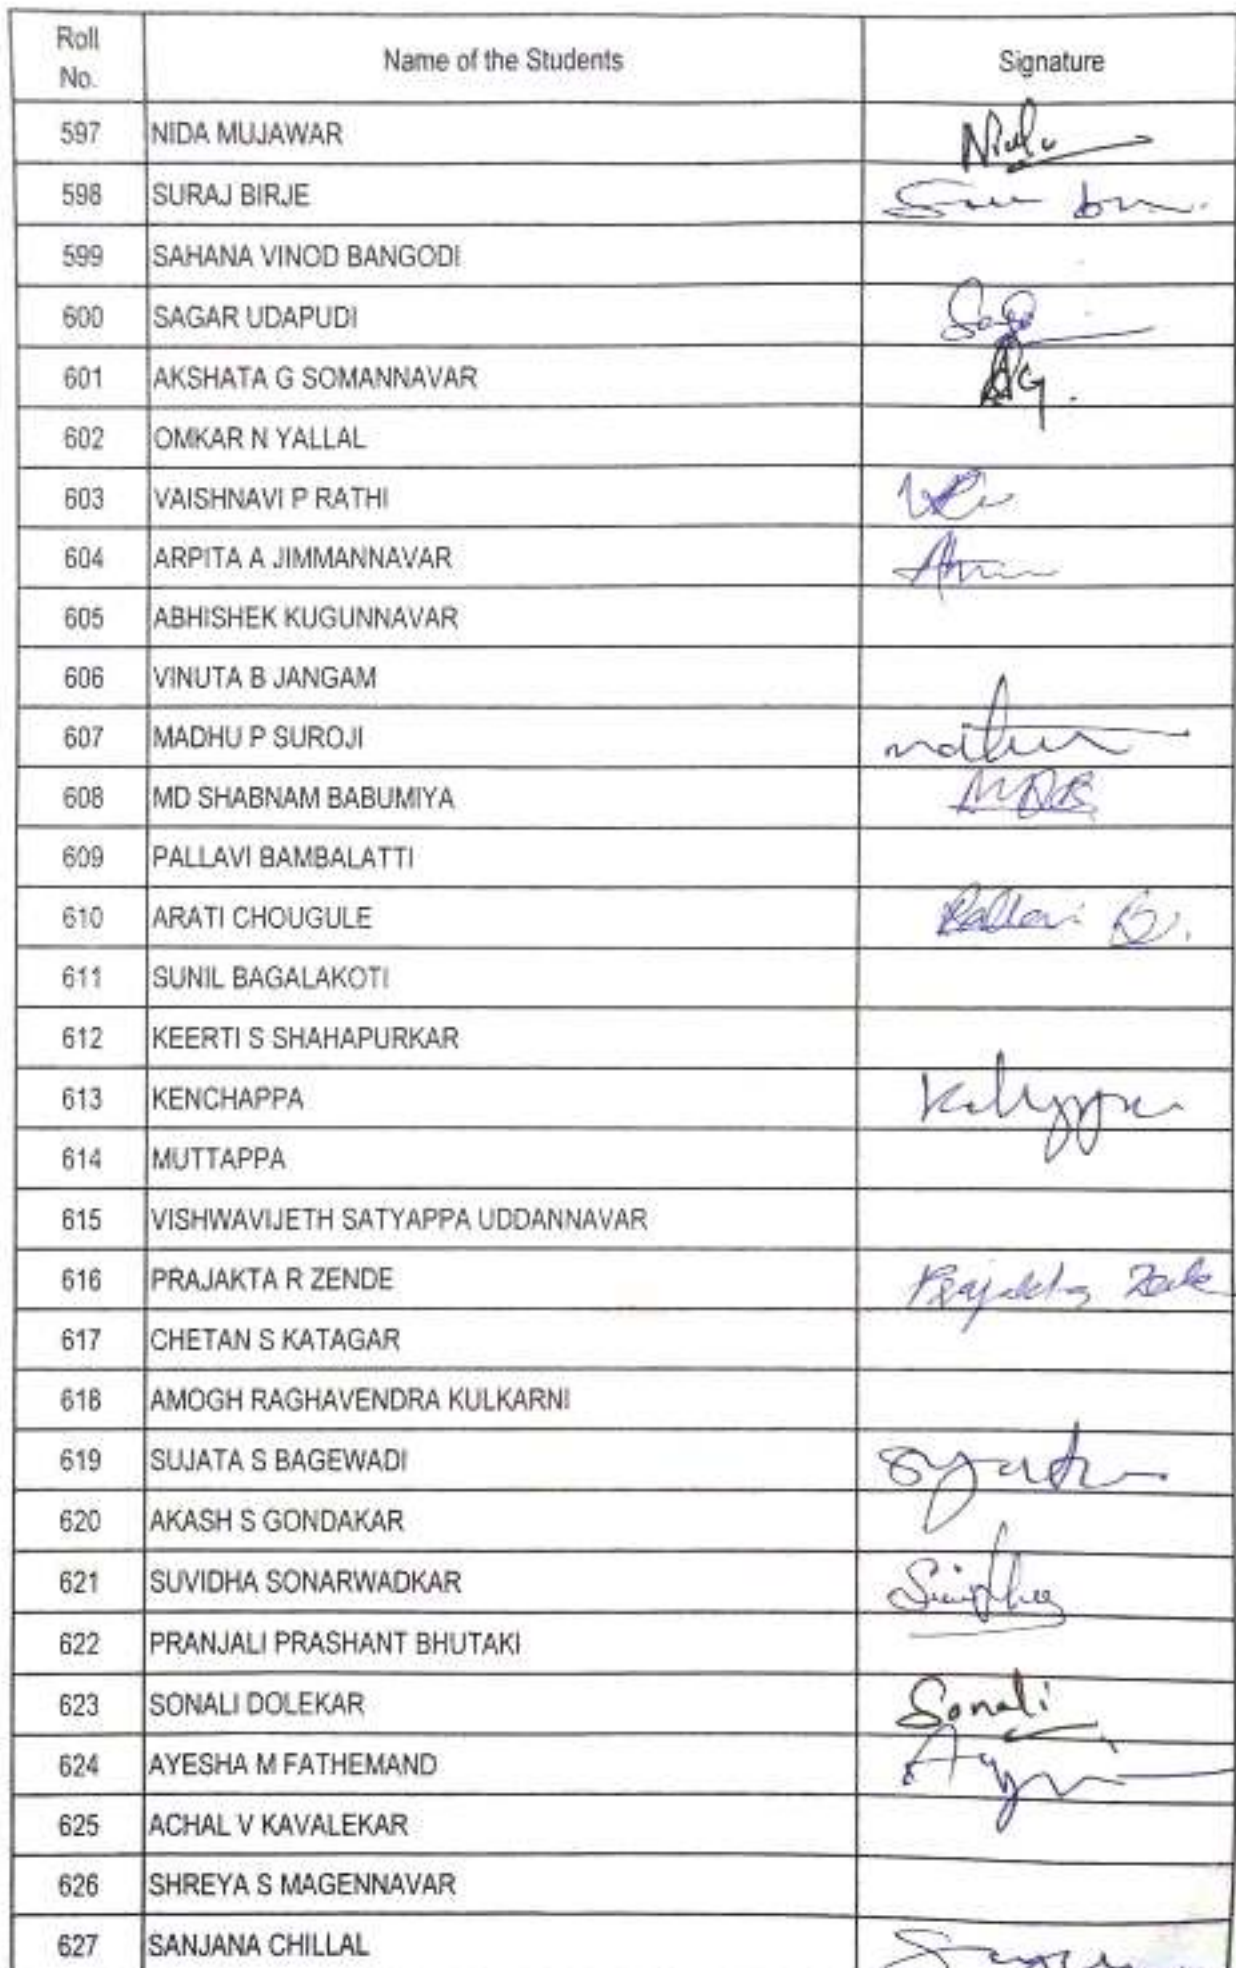 Roll No. Name of the Students Signature
597 NIDA MUJAWAR Nida
598 SURAJ BIRJE
599 SAHANA VINOD BANGODI
600 SAGAR UDAPUDI
601 AKSHATA G SOMANNAVAR AG.
602 OMKAR N YALLAL
603 VAISHNAVI P RATHI
604 ARPITA A JIMMANNAVAR
605 ABHISHEK KUGUNNAVAR
606 VINUTA B JANGAM
607 MADHU P SUROJI
608 MD SHABNAM BABUMIYA
609 PALLAVI BAMBALATTI
610 ARATI CHOUGULE Pallavi B.
611 SUNIL BAGALAKOTI
612 KEERTI S SHAHAPURKAR
613 KENCHAPPA
614 MUTTAPPA
615 VISHWAVIJETH SATYAPPA UDDANNAVAR
616 PRAJAKTA R ZENDE Prajakta Zende
617 CHETAN S KATAGAR
618 AMOGH RAGHAVENDRA KULKARNI
619 SUJATA S BAGEWADI
620 AKASH S GONDAKAR
621 SUVIDHA SONARWADKAR Suvidha
622 PRANJALI PRASHANT BHUTAKI
623 SONALI DOLEKAR Sonali
624 AYESHA M FATHEMAND
625 ACHAL V KAVALEKAR
626 SHREYA S MAGENNAVAR
627 SANJANA CHILLAL